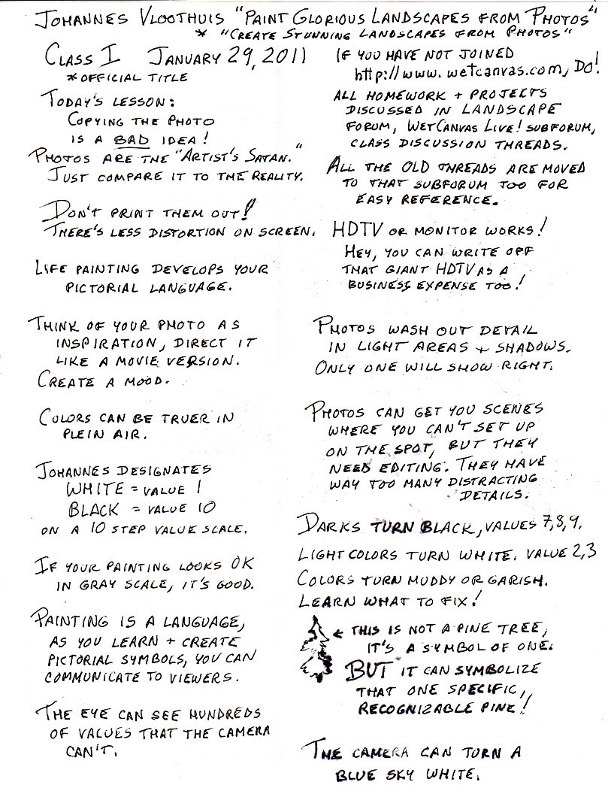 JOHANNES VLOOTHUIS "PAINT GLORIOUS LANDSCAPES FROM PHOTOS"
* "CREATE STUNNING LANDSCAPES FROM PHOTOS"
CLASS I JANUARY 29, 2011
*OFFICIAL TITLE
TODAY'S LESSON:
COPYING THE PHOTO
IS A BAD IDEA!
PHOTOS ARE THE "ARTIST'S SATAN."
JUST COMPARE IT TO THE REALITY.
DON'T PRINT THEM OUT!
THERE'S LESS DISTORTION ON SCREEN.
LIFE PAINTING DEVELOPS YOUR
PICTORIAL LANGUAGE.
THINK OF YOUR PHOTO AS
INSPIRATION, DIRECT IT
LIKE A MOVIE VERSION.
CREATE A MOOD.
COLORS CAN BE TRUER IN
PLEIN AIR.
JOHANNES DESIGNATES
WHITE = VALUE 1
BLACK = VALUE 10
ON A 10 STEP VALUE SCALE.
IF YOUR PAINTING LOOKS OK
IN GRAY SCALE, IT'S GOOD.
PAINTING IS A LANGUAGE,
AS YOU LEARN + CREATE
PICTORIAL SYMBOLS, YOU CAN
COMMUNICATE TO VIEWERS.
THE EYE CAN SEE HUNDREDS
OF VALUES THAT THE CAMERA
CAN'T.
IF YOU HAVE NOT JOINED
http://www.wetcanvas.com, DO!
ALL HOMEWORK + PROJECTS
DISCUSSED IN LANDSCAPE
FORUM, WETCANVAS LIVE! SUBFORUM,
CLASS DISCUSSION THREADS.
ALL THE OLD THREADS ARE MOVED
TO THAT SUBFORUM TOO FOR
EASY REFERENCE.
HDTV OR MONITOR WORKS!
HEY, YOU CAN WRITE OFF
THAT GIANT HDTV AS A
BUSINESS EXPENSE TOO!
PHOTOS WASH OUT DETAIL
IN LIGHT AREAS + SHADOWS.
ONLY ONE WILL SHOW RIGHT.
PHOTOS CAN GET YOU SCENES
WHERE YOU CAN'T SET UP
ON THE SPOT, BUT THEY
NEED EDITING. THEY HAVE
WAY TOO MANY DISTRACTING
DETAILS.
DARKS TURN BLACK, VALUES 7,8,9.
LIGHT COLORS TURN WHITE. VALUE 2,3
COLORS TURN MUDDY OR GARISH.
LEARN WHAT TO FIX!
← THIS IS NOT A PINE TREE,
IT'S A SYMBOL OF ONE.
BUT IT CAN SYMBOLIZE
THAT ONE SPECIFIC,
RECOGNIZABLE PINE!
THE CAMERA CAN TURN A
BLUE SKY WHITE.